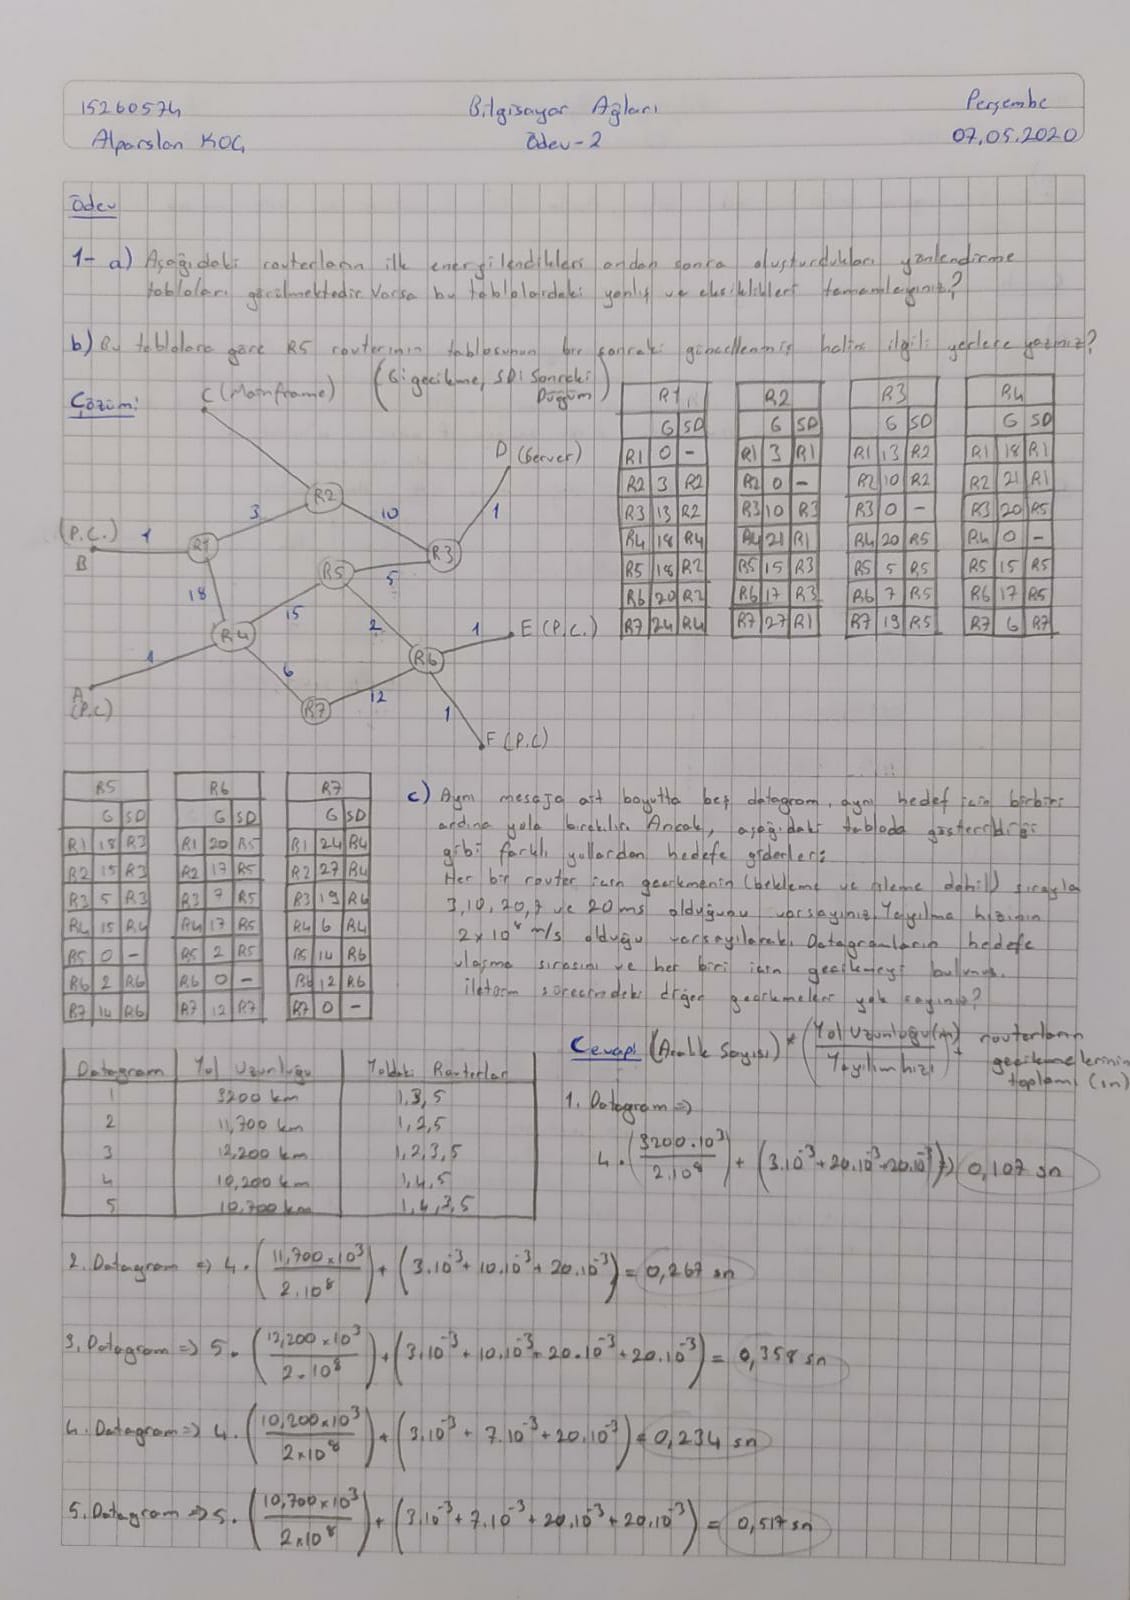 15260574 Bilgisayar Ağları Perşembe
Alparslan KOÇ Ödev-2 07.05.2020
Ödev
1- a) Aşağıdaki routerların ilk energilendikleri andan sonra oluşturdukları yönlendirme
tabloları görülmektedir. Varsa bu tablolardaki yanlış ve eksiklikleri tamamlayınız?
b) Bu tablolara göre R5 routerının tablosunun bir sonraki güncellenmiş halini ilgili yerlere yazınız?
(G: gecikme, SD: Sonraki Düğüm)
Çözüm:
C (Mainframe)
D (Server)
(P.C.)
B
A
(P.C)
E (P.C.)
F (P.C)
R1 R2 R3 R4 R5 R6 R7
1 3 10 1 18 15 5 2 1 1 6 12 1
R1
G SD
R1 0 -
R2 3 R2
R3 13 R2
R4 18 R4
R5 18 R2
R6 20 R2
R7 24 R4
R2
G SD
R1 3 R1
R2 0 -
R3 10 R3
R4 21 R1
R5 15 R3
R6 17 R3
R7 27 R1
R3
G SD
R1 13 R2
R2 10 R2
R3 0 -
R4 20 R5
R5 5 R5
R6 7 R5
R7 19 R5
R4
G SD
R1 18 R1
R2 21 R1
R3 20 R5
R4 0 -
R5 15 R5
R6 17 R5
R7 6 R7
R5
G SD
R1 18 R3
R2 15 R3
R3 5 R3
R4 15 R4
R5 0 -
R6 2 R6
R7 14 R6
R6
G SD
R1 20 R5
R2 17 R5
R3 7 R5
R4 17 R5
R5 2 R5
R6 0 -
R7 12 R7
R7
G SD
R1 24 R4
R2 27 R4
R3 19 R6
R4 6 R4
R5 14 R6
R6 12 R6
R7 0 -
c) Aynı mesaja ait boyutta beş datagram, aynı hedef için birbiri
ardına yola bırakılır. Ancak, aşağıdaki tabloda gösterildiği
gibi farklı yollardan hedefe giderler:
Her bir router için gecikmenin (bekleme ve işleme dahil) sırayla
3,10,20,7 ve 20 ms olduğunu varsayınız. Yayılma hızının
2x10⁸ m/s olduğu varsayılarak, Datagramların hedefe
ulaşma sırasını ve her biri için gecikmeyi bulunuz.
iletim sürecindeki diğer gecikmeleri yok sayınız?
Datagram Yol Uzunluğu Yoldaki Routerlar
1 3200 km 1,3,5
2 11,700 km 1,2,5
3 12,200 km 1,2,3,5
4 10,200 km 1,4,5
5 10,700 km 1,4,3,5
Cevap: (Aralık Sayısı) * (Yol Uzunluğu(m) / Yayılım hızı) + routerların gecikmelerinin toplamı (sn)
1. Datagram =>
4.(3200.10³ / 2.10⁸) + (3.10⁻³+20.10⁻³+20.10⁻³) => 0,107 sn
2. Datagram => 4.(11,700x10³ / 2.10⁸) + (3.10⁻³+10.10⁻³+20.10⁻³) = 0,267 sn
3. Datagram => 5.(12,200x10³ / 2.10⁸) + (3.10⁻³+10.10⁻³+20.10⁻³+20.10⁻³) = 0,358 sn
4. Datagram => 4.(10,200x10³ / 2x10⁸) + (3.10⁻³+7.10⁻³+20.10⁻³) = 0,234 sn
5. Datagram => 5.(10,700x10³ / 2x10⁸) + (3.10⁻³+7.10⁻³+20.10⁻³+20.10⁻³) = 0,517 sn